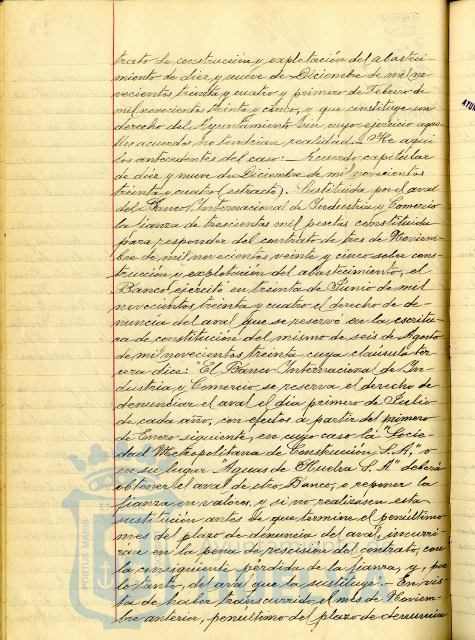 trato de construccion y explotación del abasteci-
miento de diez y nueve de Diciembre de mil no-
vecientos treinta y cuatro y primero de Febrero de
mil novecientos treinta y cinco, y que constituye un
derecho del Ayuntamiento sin cuyo ejercicio aque-
llos acuerdos no tendrian realidad.- He aqui
los antecedentes del caso:- Acuerdo capitular
de diez y nueve de Diciembre de mil novecientos
treinta y cuatro (extracto). Sustituida por el aval
del Banco Internacional de Industria y Comercio
la fianza de trescientas mil pesetas constituida
para responder del contrato de tres de Noviem-
bre de mil novecientos veinte y cinco sobre cons-
trucción y explotacion del abastecimiento, el
Banco ejercitó en treinta de Junio de mil
novecientos treinta y cuatro el derecho de de-
nuncia del aval que se reservó en la escritu-
ra de constitucion del mismo de seis de Agosto
de mil novecientos treinta cuya cláusula ter-
cera dice: "El Banco Internacional de In-
dustria y Comercio se reserva el derecho de
denunciar el aval el dia primero de Julio
de cada año, con efectos a partir del primero
de Enero siguiente, en cuyo caso la "Socie-
dad Metropolitana de Construcción S.A." o
en su lugar "Aguas de Huelva S.A" deberá
obtener el aval de otro Banco, o reponer la
fianza en valores, y si no realizasen esta
sustitucion antes de que termine el penúltimo
mes del plazo de denuncia del aval, incurri-
ran en la pena de rescision del contrato, con
la consiguiente perdida de la fianza, y, por
lo tanto, del aval que la sustituye.- En vis-
ta de haber transcurrido el mes de Noviem-
bre anterior, penultimo del plazo de denuncia
PORTUS MARIS